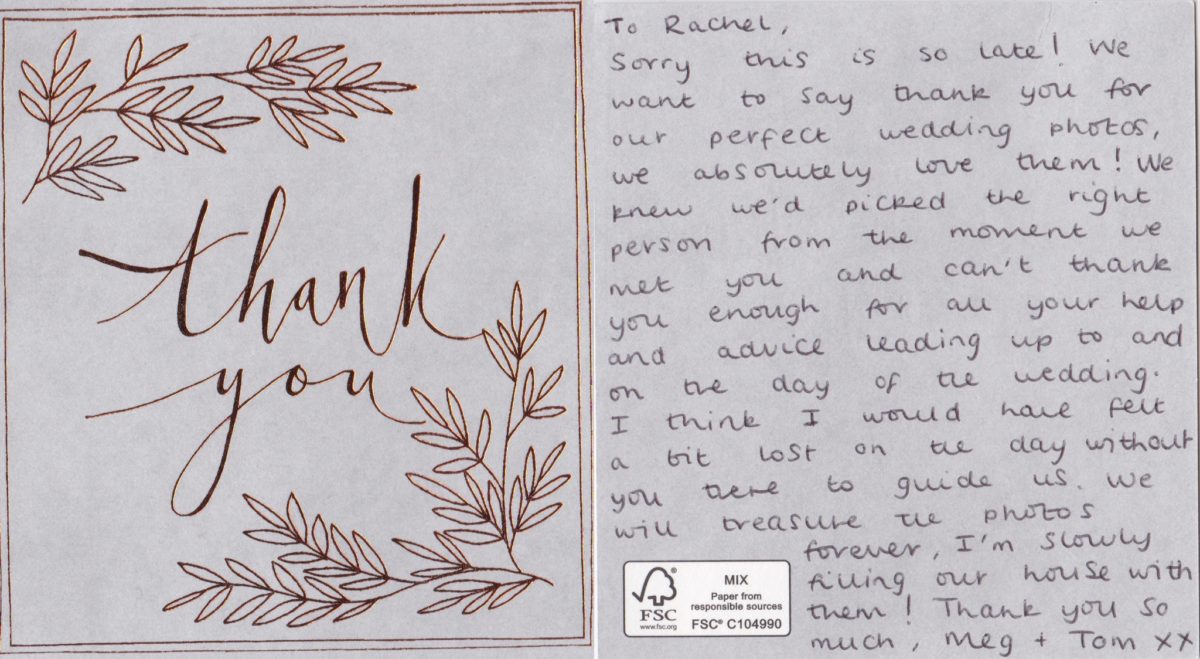 thank
you
To Rachel,
Sorry this is so late! We
want to say thank you for
our perfect wedding photos,
we absolutely love them! We
knew we'd picked the right
person from the moment we
met you and can't thank
you enough for all your help
and advice leading up to and
on the day of the wedding.
I think I would have felt
a bit lost on the day without
you there to guide us. We
will treasure the photos
forever, I'm slowly
filling our house with
them! Thank you so
much, Meg + Tom xx
MIX
Paper from
responsible sources
FSC® C104990
®
FSC
www.fsc.org